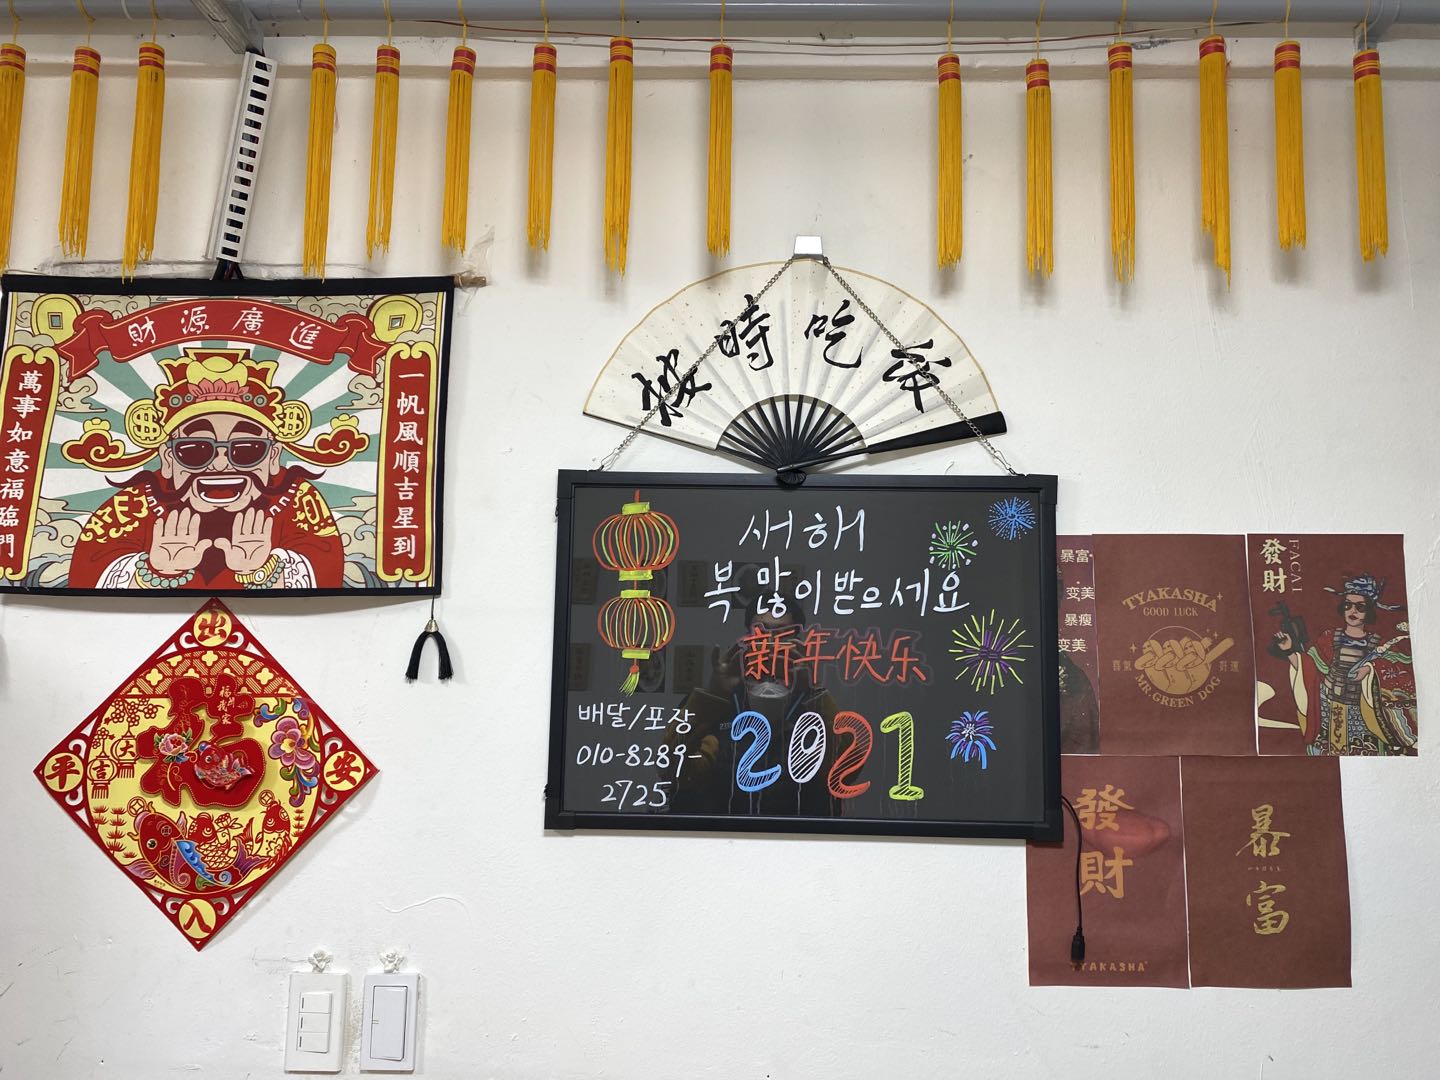 財源廣進
萬事如意福臨門
一帆風順吉星到
按時吃飯
새해
복 많이 받으세요
新年快乐
2021
배달/포장
010-8289-
2725
出
平
安
入
福
大
吉
暴富
变美
暴瘦
变美
TYAKASHA
GOOD LUCK
MR. GREEN DOG
發財
FACAI
發
財
TYAKASHA
暴
富